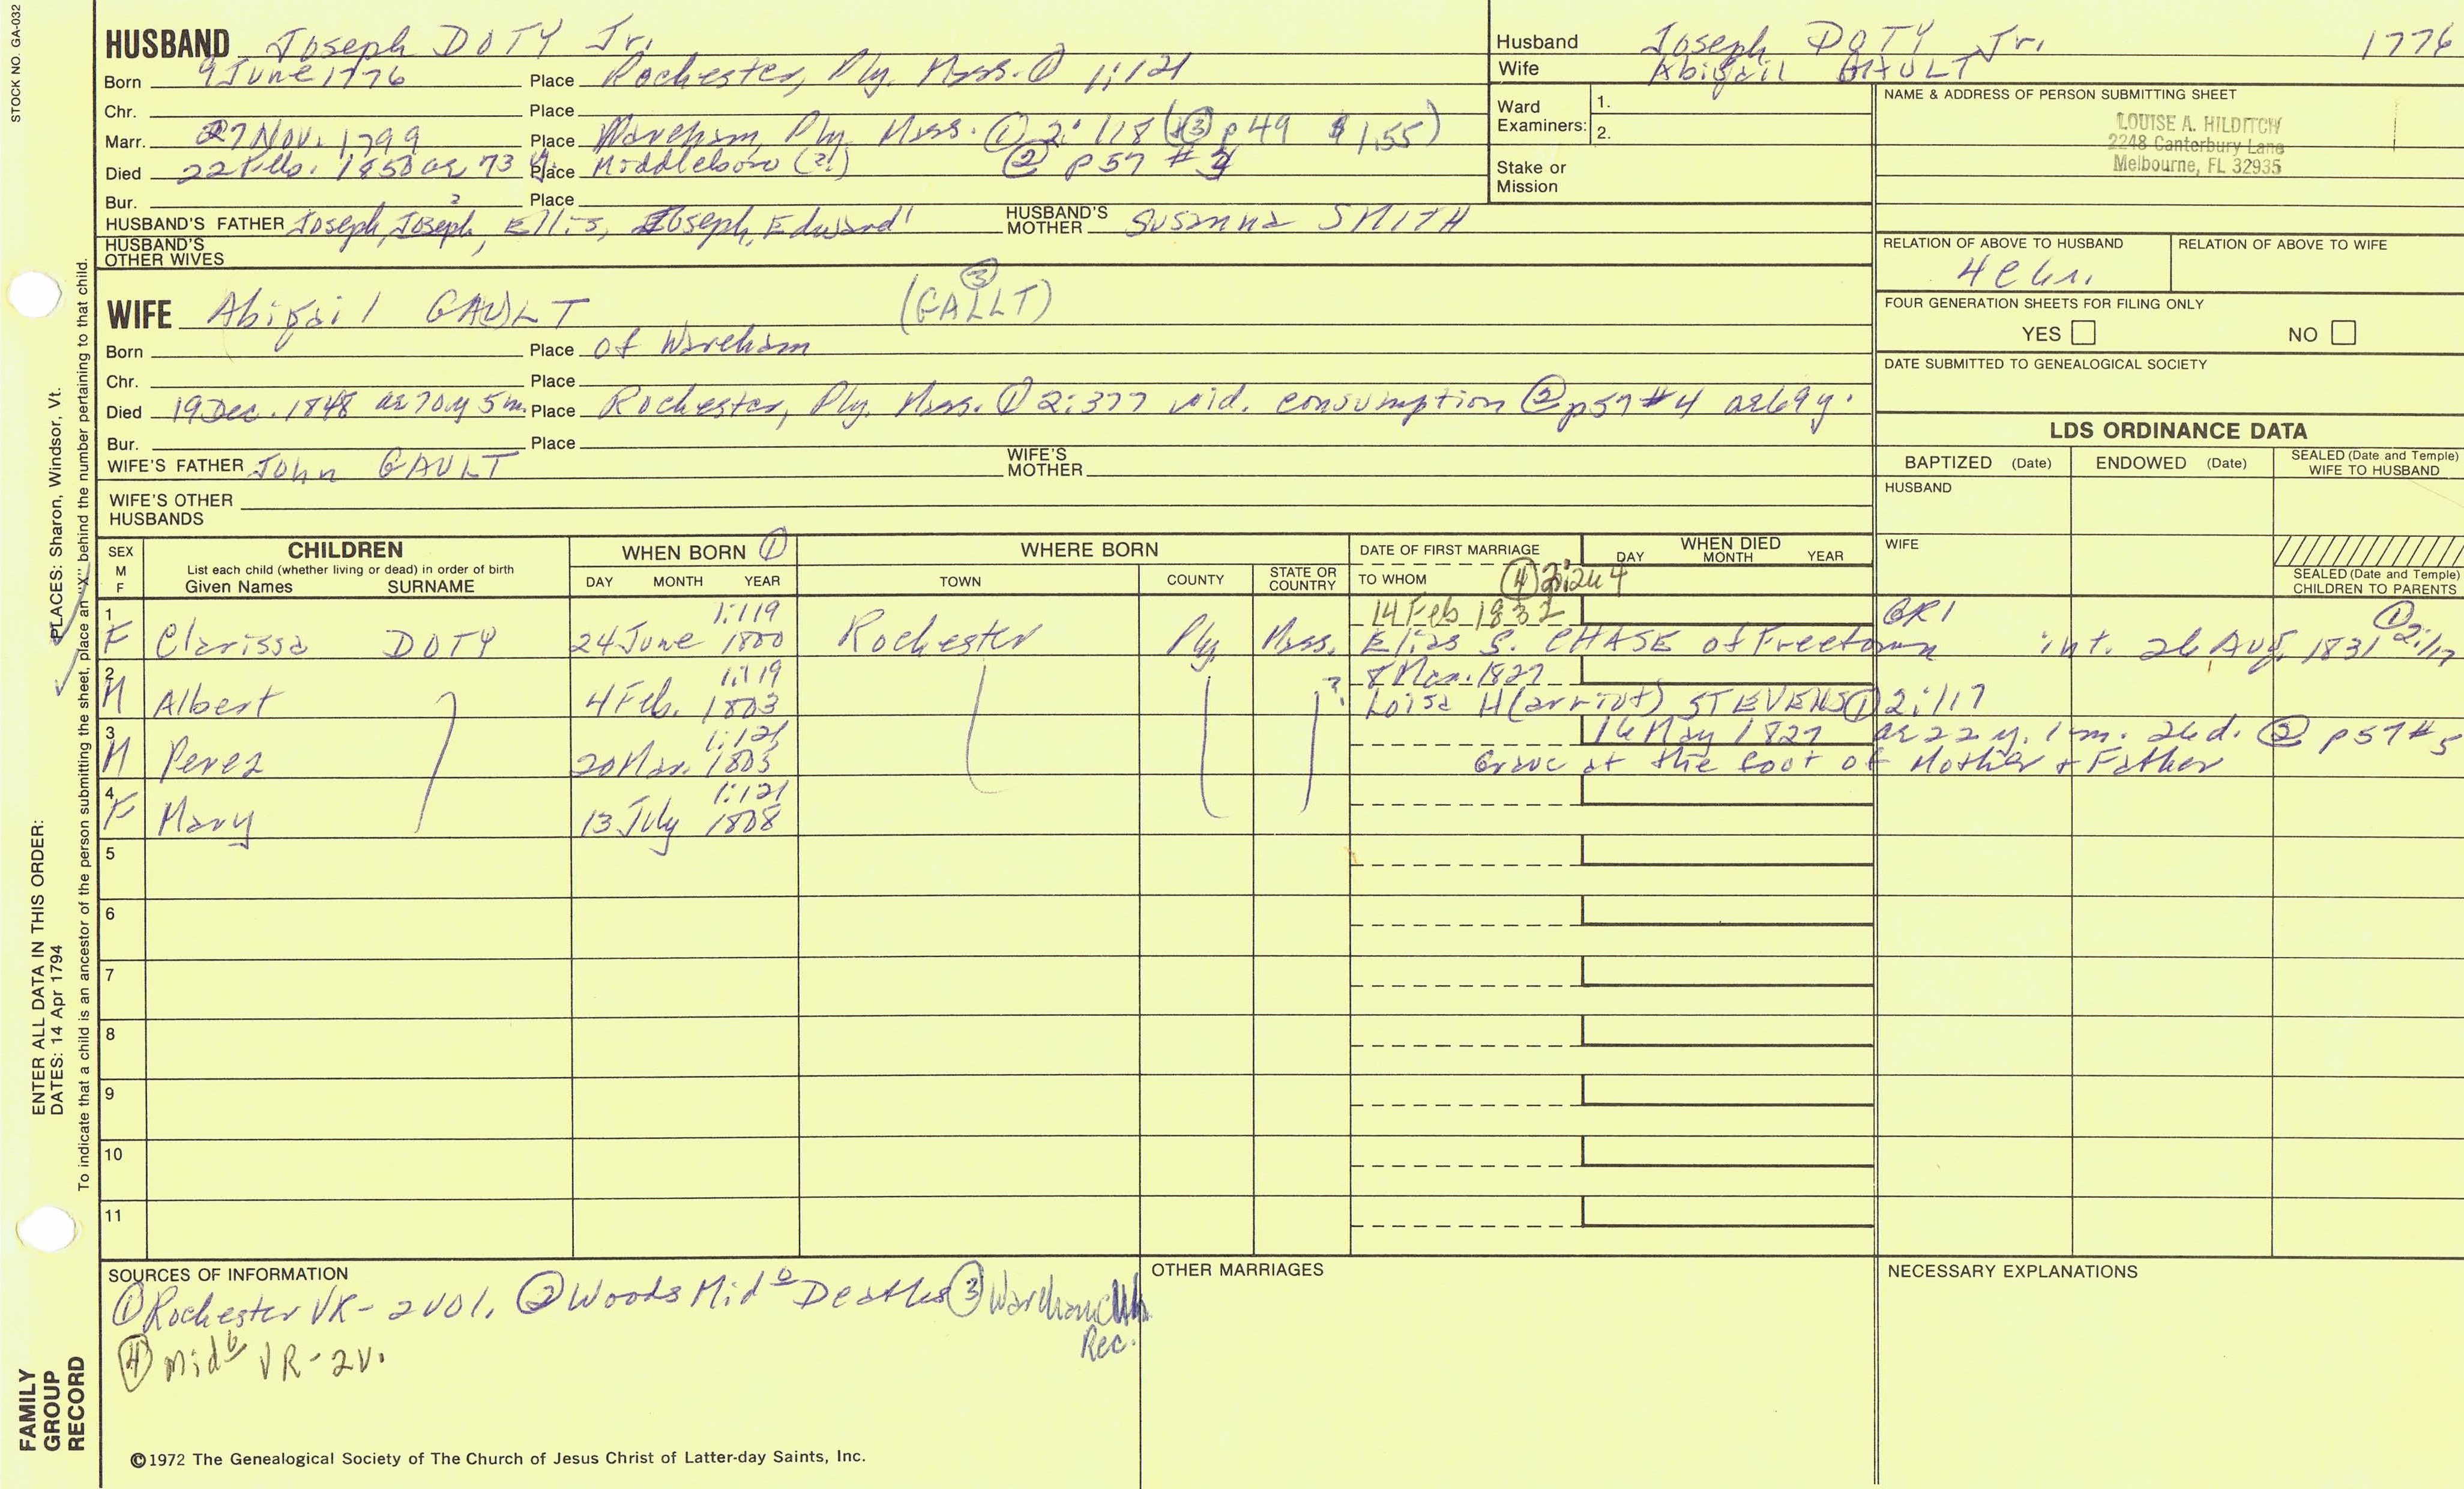 STOCK NO. GA-032
HUSBAND Joseph DOTY Jr.
Born 9 June 1776 Place Rochester, Ply. Mass. ① 1:121
Chr. Place
Marr. 27 Nov. 1799 Place Wareham, Ply. Mass. ① 2:118 (③ p49 $1.55)
Died 22 Feb. 1850 ae 73 y. Place Middleboro (2:) ② p57 #
Bur. Place
HUSBAND'S FATHER Joseph, Joseph, Ellis, Joseph, Edward¹ HUSBAND'S MOTHER Susanna SMITH
HUSBAND'S OTHER WIVES
WIFE Abigail GAULT (GALLT) ③
Born Place of Wareham
Chr. Place
Died 19 Dec. 1848 ae 70 y 5 m. Place Rochester, Ply. Mass. ① 2:377 wid. consumption ② p57 #4 ae 69 y.
Bur. Place
WIFE'S FATHER John GAULT WIFE'S MOTHER
WIFE'S OTHER HUSBANDS
Husband Joseph DOTY Jr. 1776
Wife Abigail GAULT
Ward Examiners: 1.
2.
Stake or Mission
NAME & ADDRESS OF PERSON SUBMITTING SHEET
LOUISE A. HILDITCH
2248 Canterbury Lane
Melbourne, FL 32935
RELATION OF ABOVE TO HUSBAND RELATION OF ABOVE TO WIFE
FOUR GENERATION SHEETS FOR FILING ONLY
YES NO
DATE SUBMITTED TO GENEALOGICAL SOCIETY
LDS ORDINANCE DATA
BAPTIZED (Date) ENDOWED (Date) SEALED (Date and Temple) WIFE TO HUSBAND
HUSBAND
WIFE
SEALED (Date and Temple) CHILDREN TO PARENTS
SEX M F CHILDREN WHEN BORN ① WHERE BORN DATE OF FIRST MARRIAGE WHEN DIED
List each child (whether living or dead) in order of birth
Given Names SURNAME DAY MONTH YEAR TOWN COUNTY STATE OR COUNTRY TO WHOM ④ DAY MONTH YEAR
1 1:119 14 Feb 1832 GR1 ① 2:117
F Clarissa DOTY 24 June 1800 Rochester Ply. Mass. Elias S. CHASE of Freetown int. 26 Aug. 1831
2 1:119 8 Mar. 1827
M Albert 4 Feb. 1803 ? Loisa H(arriot) STEVENS ① 2:117
3 1:121 16 May 1827 ae 22 y. 1 m. 26 d. ② p57 #5
M Perez 20 Mar. 1805 Grave at the foot of Mother + Father
4 1:121
F Mary 13 July 1808
5
6
7
8
9
10
11
SOURCES OF INFORMATION
① Rochester VR - 2 vol. ② Woods Midᵒ Deaths ③ Wareham Ch. Rec.
④ Midᵇ VR - 2v.
OTHER MARRIAGES
NECESSARY EXPLANATIONS
©1972 The Genealogical Society of The Church of Jesus Christ of Latter-day Saints, Inc.
FAMILY GROUP RECORD
ENTER ALL DATA IN THIS ORDER:
DATES: 14 Apr 1794
PLACES: Sharon, Windsor, Vt.
To indicate that a child is an ancestor of the person submitting the sheet, place an "X" behind the number pertaining to that child.